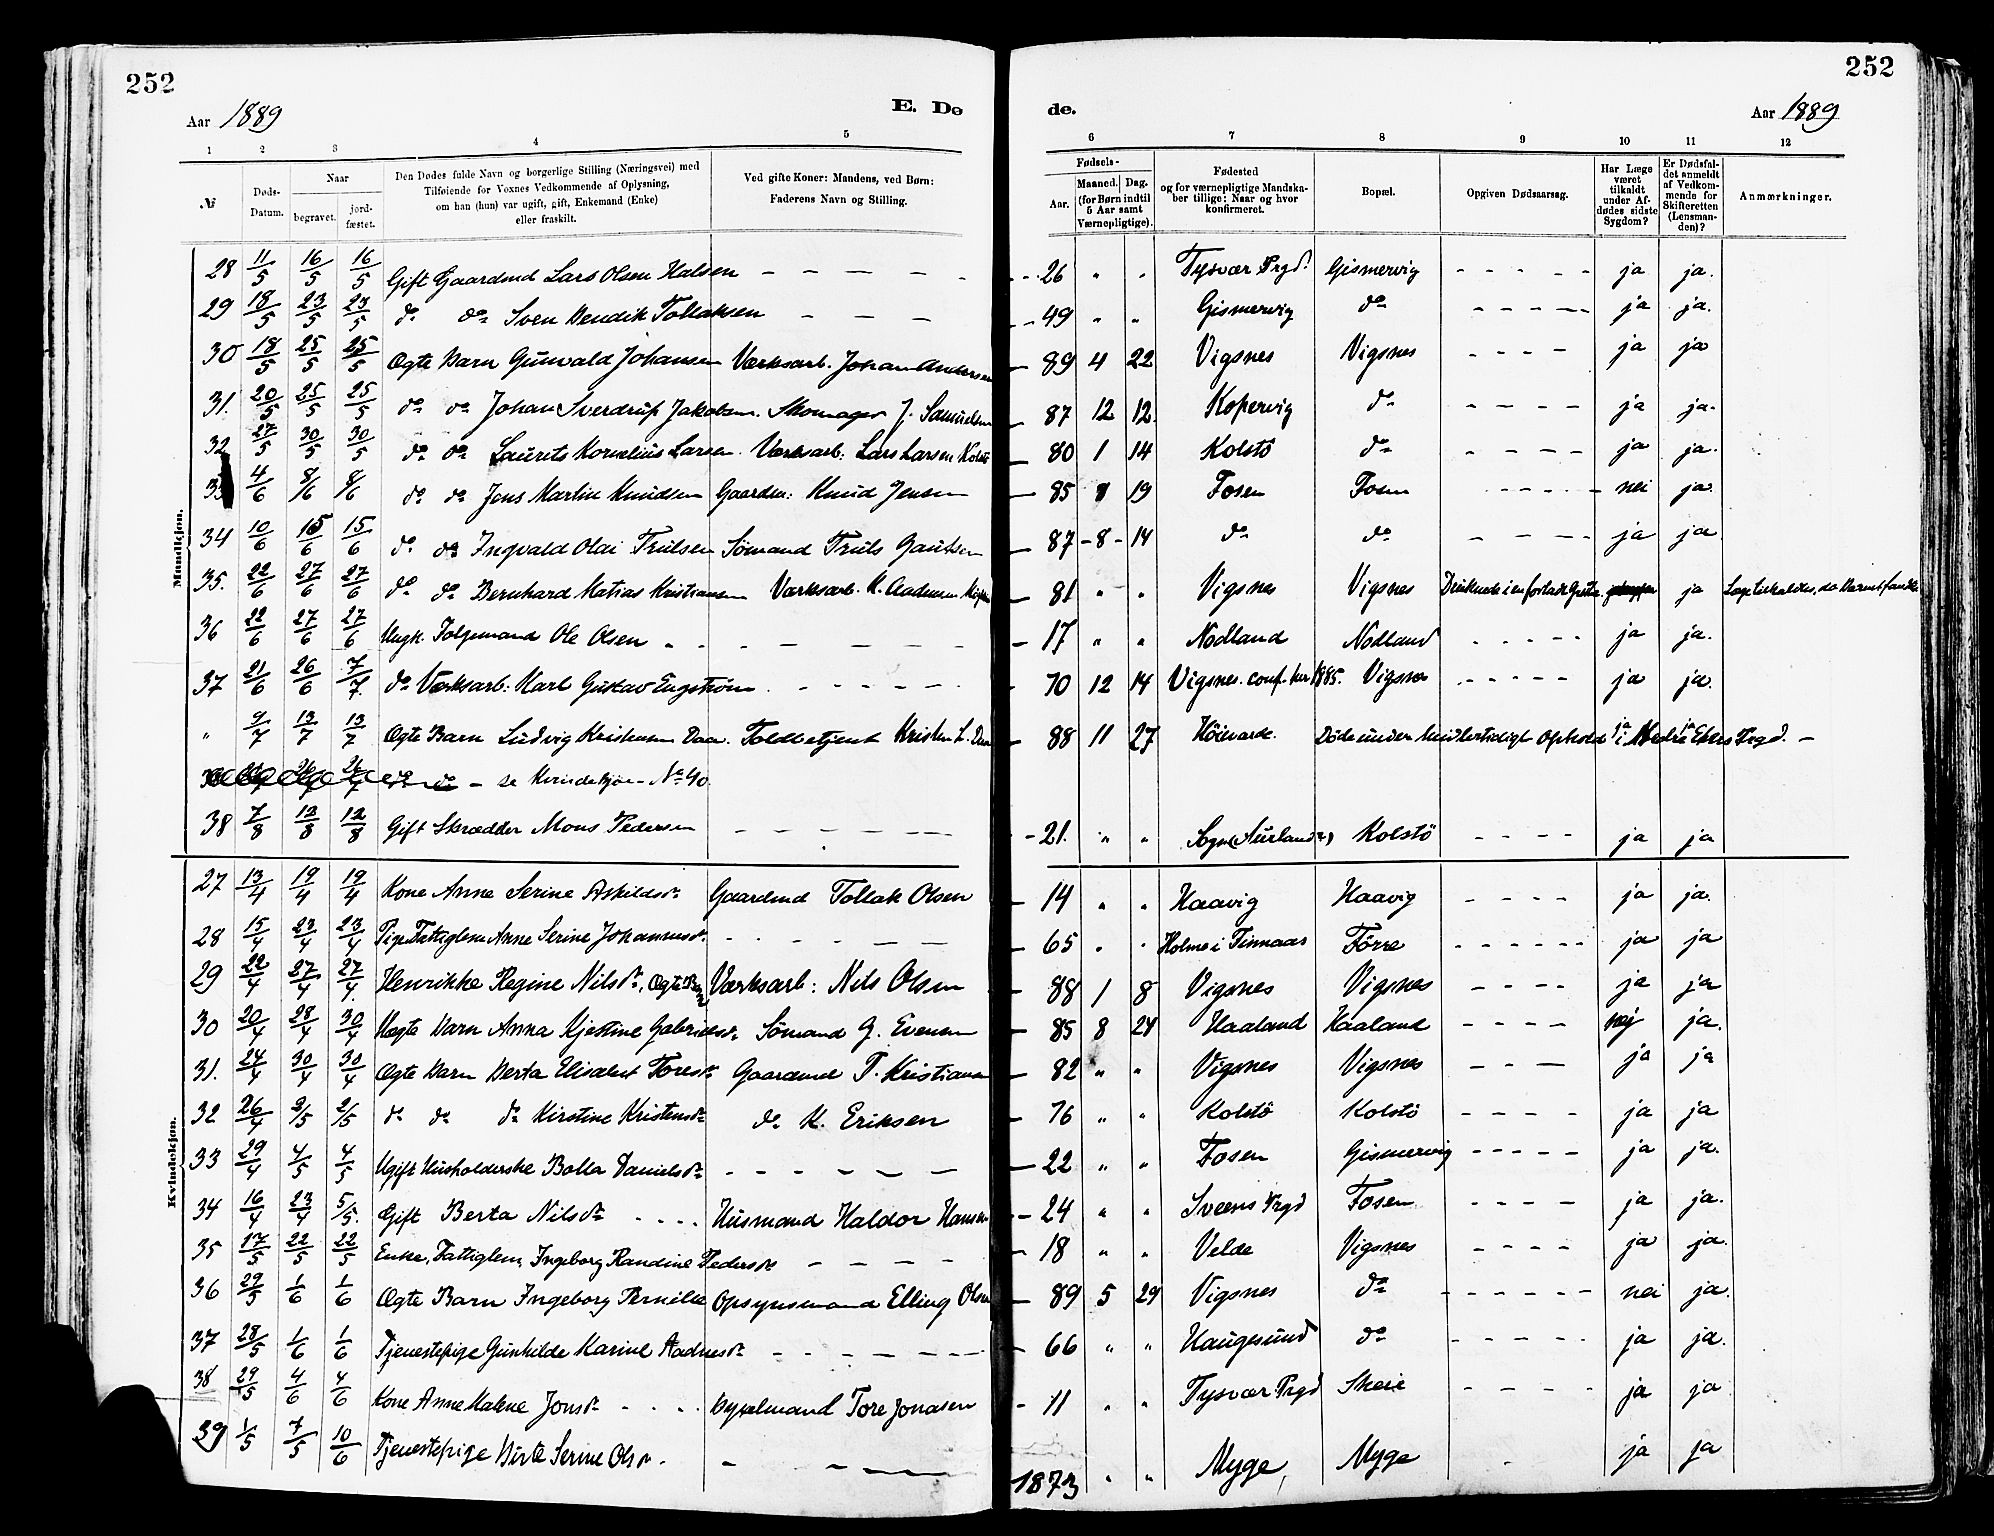 252
252
Aar 1889
E. Dø
de.
Aar 1889
1 2 3 4 5 6 7 8 9 10 11 12
№
Døds-Datum.
Naar
begravet.
jord-fæstet.
Den Dødes fulde Navn og borgerlige Stilling (Næringsvei) med
Tilføiende for Voxnes Vedkommende af Oplysning,
om han (hun) var ugift, gift, Enkemand (Enke)
eller fraskilt.
Ved gifte Koner: Mandens, ved Børn:
Faderens Navn og Stilling.
Fødsels-
Aar.
Maaned. Dag.
(for Børn indtil
5 Aar samt
Værnepligtige).
Fødested
og for værnepligtige Mandska-
ber tillige: Naar og hvor
konfirmeret.
Bopæl.
Opgiven Dødsaarsag.
Har Læge
været
tilkaldt
under Af-
dødes sidste
Sygdom?
Er Dødsfal-
det anmeldt
af Vedkom-
mende for
Skifteretten
(Lensman-
den)?
Anmærkninger.
Mandkjøn.
28 11/5 16/5 16/5 Gift Gaardmd Lars Olsen Halsen - - - - 26 " " Tysvær Prgd. Gismervig - - - - ja ja.
29 18/5 23/5 23/5 do do Sven Bendik Tollaksen - - - 49 " " Gismervig do - - - - ja ja.
30 18/5 25/5 25/5 Ægte Barn Gunvald Johansen Værksarb. Johan Andersen 89 4 22 Vigsnes Vigsnes - - - - ja ja
31. 20/5 25/5 25/5 do do Johan Sverdrup Jakobsen. Skomager J. Samuelsen 87 12 12 Kopervig do - - - - ja ja.
32 27/5 30/5 30/5 do do Laurits Kornelius Larsen. Værksarb: Lars Larsen Kolstö 80 1 14 Kolstö do - - - - ja ja.
33 4/6 8/6 8/6 do do Jens Martin Knudsen Gaardm: Knud Jensen 85 8 19 Fosen Fosen - - - - nei ja.
34 10/6 15/6 15/6 do do Ingvald Olai Trulsen Sömand Truls Gautsen 87 - 8 - 14 do do - - - - ja ja
35. 22/6 27/6 27/6 do do Bernhard Matias Kristiansen Værksarb. K. Aadnesen 81 " " Vigsnes Vigsnes Druknede i en forladt Grube ja
36 22/6 27/6 27/6 Ungk. Ole Olsen " - - - 17 " " Nodland Nodland - - - - ja ja.
37 21/6 26/6 7/7 do Værksarb: Karl Gustav Engström. - - - - 70 12 14 Vigsnes. conf. her 1885. Vigsnes - - - - ja ja.
" 9/7 13/7 13/7 Ægte Barn Ludvig Kristensen Daa. Toldbetjent Kristen L. Daa 88 11 27 Höievarde. Döde under midlertidigt Ophold i Nedre Ekers Prgd. - ja ja
do do - se Kvindekjön - No 40.
38 7/8 12/8 12/8 Gift Skrædder Mons Pedersen - - - - 21. " " Sogn (Aurland?) Kolstö - - - - ja ja
Kvindekjøn.
27 13/4 19/4 19/4 Kone Anne Serine Askildsdr Gaardmd Tollak Olsen 14 " " Haavig Haavig - - - - ja ja.
28 15/4 23/4 23/4 Pige Fattiglem Anne Serine Johannesdr. - - - - 65 " " Holme i Finnaas Förre - - - - ja ja
29 22/4 27/4 27/4. Henrikke Regine Nilsdr, Ægte Barn Værksarb: Nils Olsen 88 1 8 Vigsnes Vigsnes - - - - ja ja
30 20/4 28/4 30/4 Uægte Barn Anna Kjestine Gabrielsdr. Sömand G. Evensen 85 8 24 Haaland Haaland - - - - nej ja.
31. 24/4 30/4 30/4 Ægte Barn Berta Elisabet Toresdr Gaardmd T. Kristiansen 82 " " Vigsnes Vigsnes - - - ja ja
32 26/4 2/5 2/5 do do do Kirstine Kristensdr do K. Eriksen 76 " " Kolstö Kolstö - - - - ja ja
33 29/4 4/5 4/5 Ugift Husholderske Bolla Danielsdr - - - - 22 " " Fosen Gismervig - - - - ja ja.
34 16/4 23/4 5/5. Gift Berta Nilsdr - - - - Husmand Haldor Hansen 24 " " Sveens Prgd Fosen - - - - ja ja.
35 17/5 22/5 22/5 Enke, Fattiglem, Ingeborg Randine Pedersdr - - - - 18 " " Velde Vigsnes - - - - ja ja.
36 29/5 1/6 1/6 Ægte Barn Ingeborg Pernille Opsynsmand Elling Olsen 89 5 29 Vigsnes do - - - - nei ja.
37 28/5 1/6 1/6 Tjenestepige Gunhilde Karine Aadnesdr - - - - 66 " " Haugesund do - - - - ja ja.
38 29/5 4/6 4/6 Kone Anne Malene Jonsdr - - - - Tore Jonasen 11 " " Tysvær Prgd Skeie - - - - ja ja
39 1/5 7/5 10/6 Tjenestepige Birte Serine Olsdr. - - - - 1873 " " Myge, Myge - ja ja